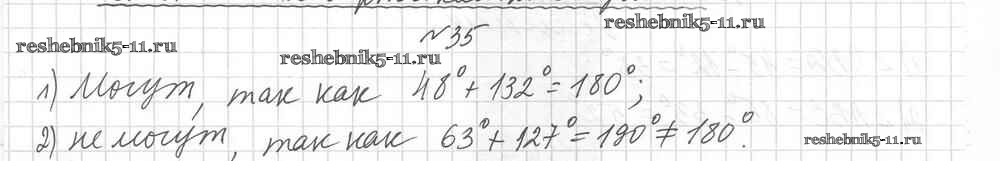 reshebnik5-11.ru
№35
reshebnik5-11.ru
reshebnik5-11.ru
1) Могут, так как 48° + 132° = 180°;
2) не могут, так как 63° + 127° = 190° ≠ 180°.
reshebnik5-11.ru